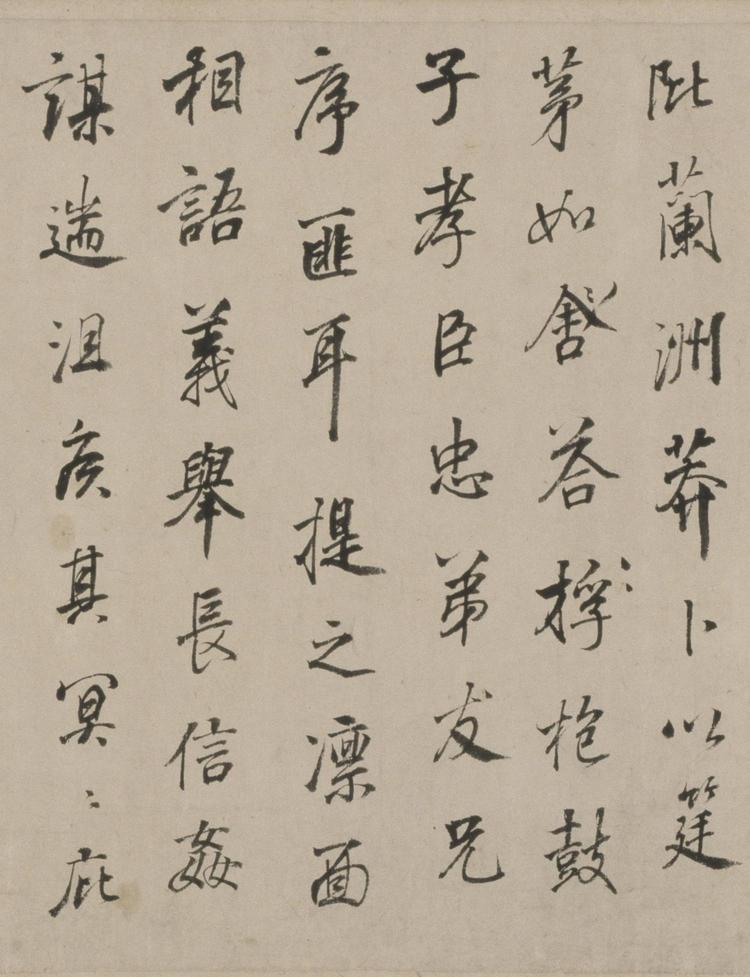 阰蘭洲莽卜以筳
茅如答桴枹鼓
子孝臣忠弟友兄
序匪耳提之凛面
相語義舉長信姦
謀遄沮矦其冥〻庇